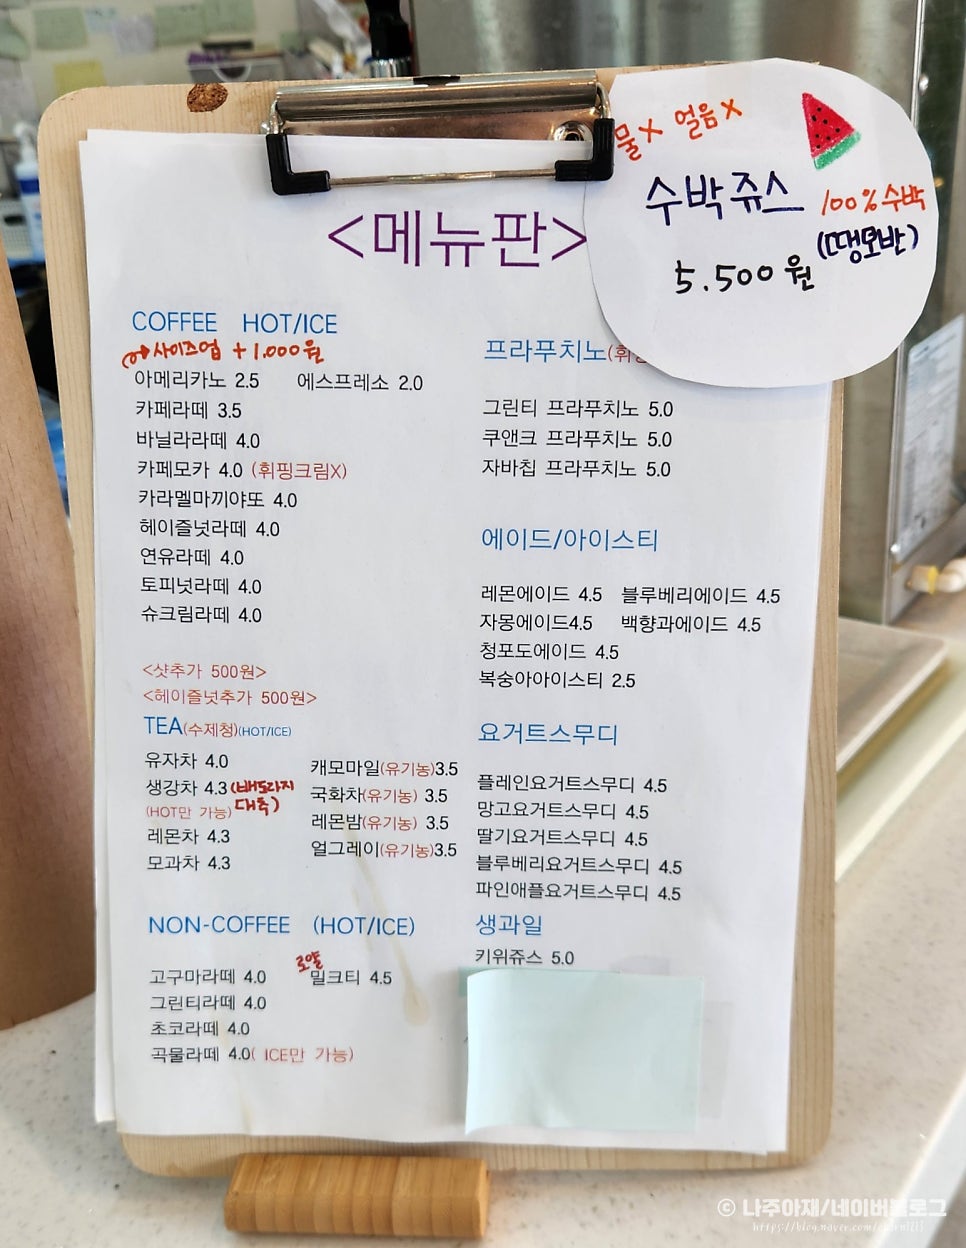 물X 얼음X
수박쥬스 100%수박
(땡모반)
5.500원
<메뉴판>
COFFEE HOT/ICE
사이즈업 +1.000원
아메리카노 2.5 에스프레소 2.0
카페라떼 3.5
바닐라라떼 4.0
카페모카 4.0 (휘핑크림X)
카라멜마끼야또 4.0
헤이즐넛라떼 4.0
연유라떼 4.0
토피넛라떼 4.0
슈크림라떼 4.0
<샷추가 500원>
<헤이즐넛추가 500원>
TEA(수제청)(HOT/ICE)
유자차 4.0
생강차 4.3 (배도라지
(HOT만 가능) 대추)
레몬차 4.3
모과차 4.3
캐모마일(유기농)3.5
국화차(유기농) 3.5
레몬밤(유기농) 3.5
얼그레이(유기농)3.5
NON-COFFEE (HOT/ICE)
고구마라떼 4.0 로얄밀크티 4.5
그린티라떼 4.0
초코라떼 4.0
곡물라떼 4.0( ICE만 가능)
프라푸치노(휘
그린티 프라푸치노 5.0
쿠앤크 프라푸치노 5.0
자바칩 프라푸치노 5.0
에이드/아이스티
레몬에이드 4.5 블루베리에이드 4.5
자몽에이드4.5 백향과에이드 4.5
청포도에이드 4.5
복숭아아이스티 2.5
요거트스무디
플레인요거트스무디 4.5
망고요거트스무디 4.5
딸기요거트스무디 4.5
블루베리요거트스무디 4.5
파인애플요거트스무디 4.5
생과일
키위쥬스 5.0
© 나주아재/네이버블로그